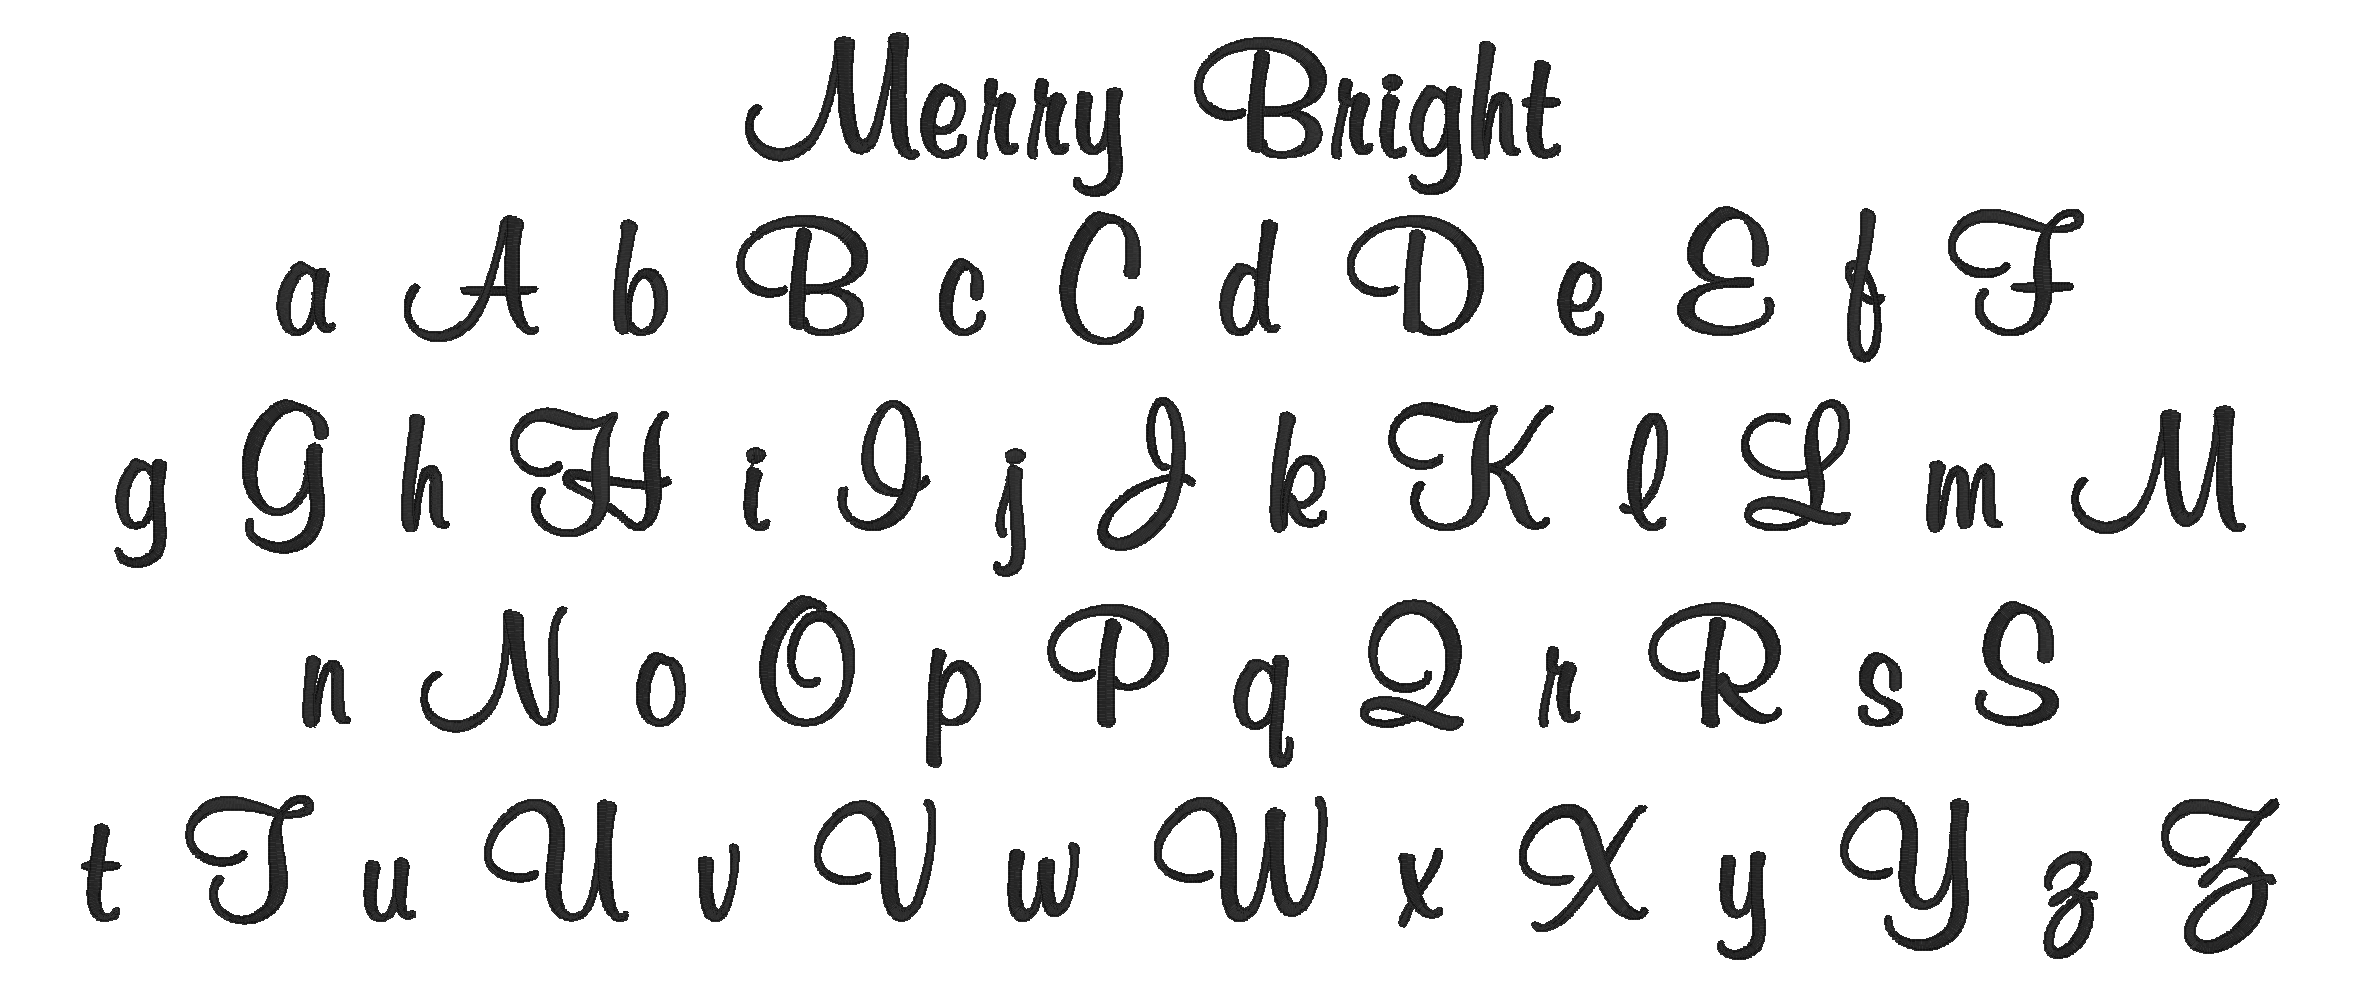 Merry Bright
a A b B c C d D e E f F
g G h H i I j J k K l L m M
n N o O p P q Q r R s S
t T u U v V w W x X y Y z Z